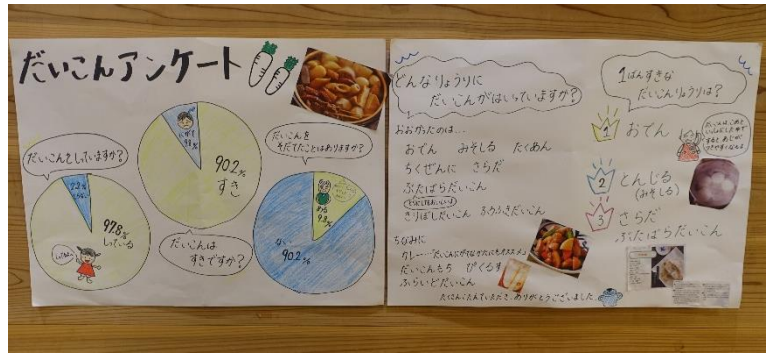 だいこんアンケート
だいこんをしていますか?
2.2%
97.8%
している
にがて
9.8%
90.2%
すき
だいこんは
すきですか?
だいこんを
そだてたことはありますか?
ある
9.8%
ない
90.2%
どんなりょうりに
だいこんがはいっていますか?
おおかったのは…
おでん みそしる たくあん
ちくぜんに さらだ
ぶたばらだいこん
きりぼしだいこん ふろふきだいこん
ちなみに
カレー…
だいこんもち ぴくるす
ふらいどだいこん
たくさんこたえていただき、ありがとうございました。
1ばんすきな
だいこんりょうりは?
1 おでん
2 とんじる
(みそしる)
3 さらだ
ぶたばらだいこん